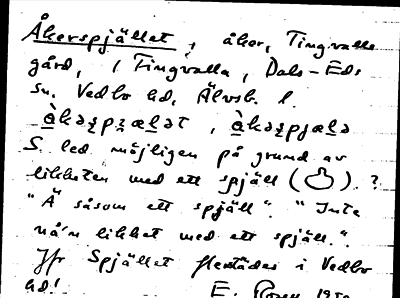 Åkerspjället, åker, Tingvalla
gård, i Tingvalla, Dals-Eds
sn. Vedbo hd, Älvsb. l.
S. led möjligen på grund av
likheten med ett spjäll ( ). ?
"Ä såsom ett spjäll". "Inte
nå'n likhet med ett spjäll.".
Jfr Spjället flestädes i Vedbo
hd! E.